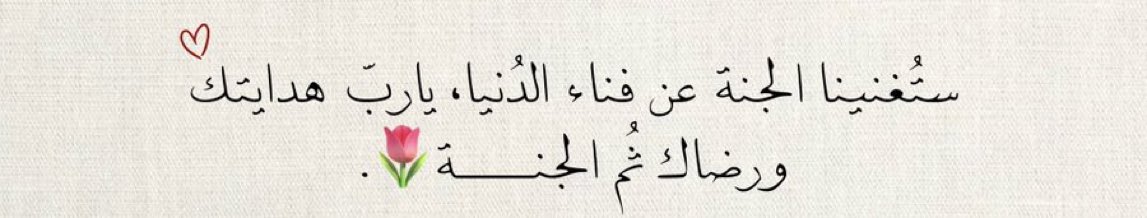 ستُغنينا الجنة عن فناء الدُنيا، ياربّ هدايتك
ورضاك ثُم الجنـــــة🌷.